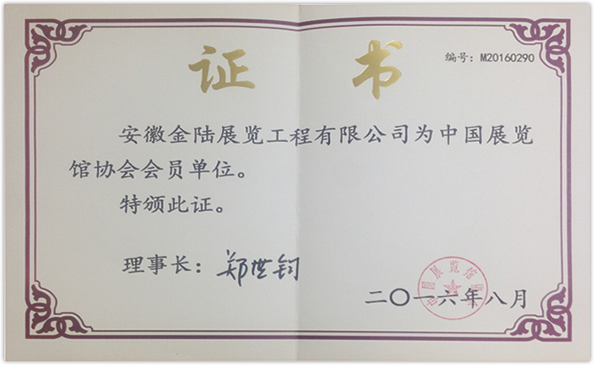 证 书
编号：M20160290
安徽金陆展览工程有限公司为中国展览
馆协会会员单位。
特颁此证。
理事长：郑世钧
二〇一六年八月